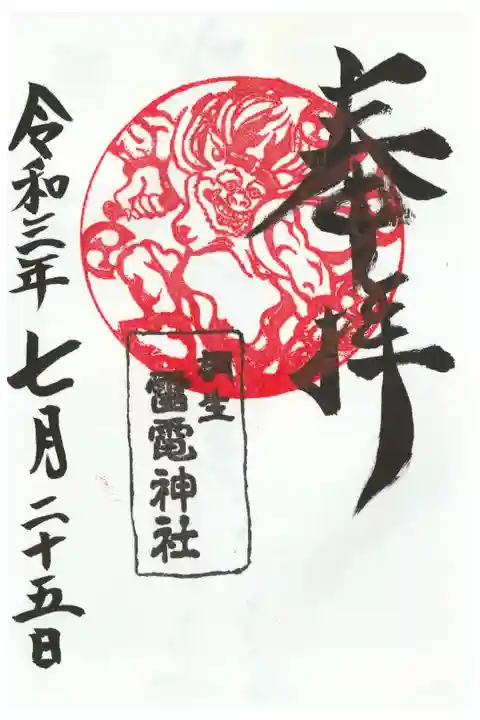 奉拝
桐生
雷電神社
令和三年七月二十五日